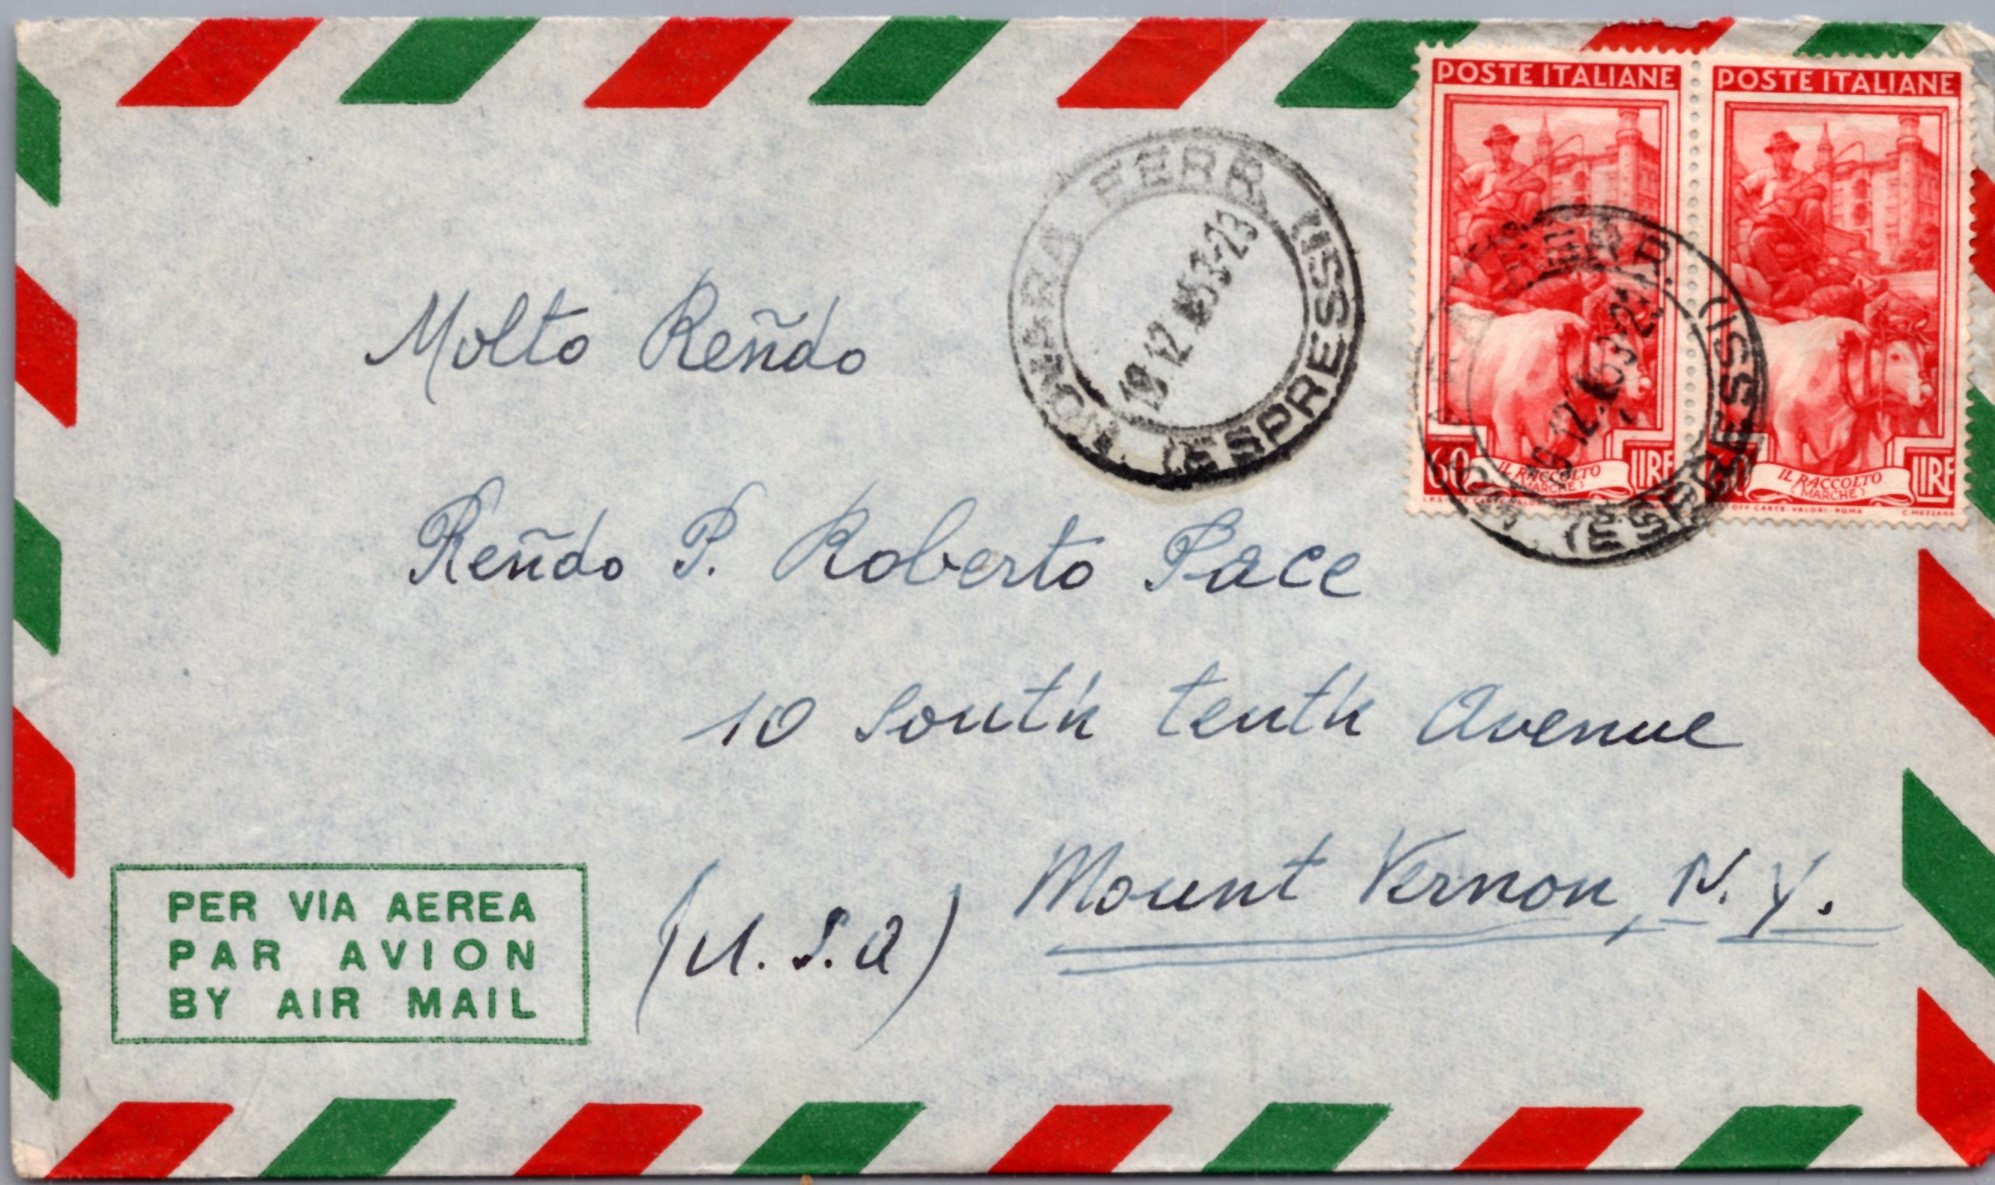 POSTE ITALIANE POSTE ITALIANE
NOVARA FERR. (ESPRESSI)
19.12.53-23
60 LIRE
IL RACCOLTO
(MARCHE)
LIRE
IL RACCOLTO
(MARCHE)
OFF. CARTE-VALORI-ROMA
C. MEZZANA
Molto Reñdo
Reñdo P. Roberto Pace
10 South tenth Avenue
Mount Vernon, N. Y.
(U. S. A)
PER VIA AEREA
PAR AVION
BY AIR MAIL